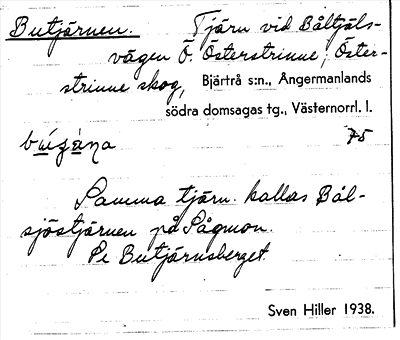 Butjärnen. Tjärn vid Båltjäls-
vägen Ö. Österstrinne, Öster-
strinne skog, Bjärtrå s:n., Ångermanlands
södra domsagas tg., Västernorrl. l.
75
Samma tjärn kallas Bål-
sjöstjärnen på Sågmon.
Pl Butjärnsberget.
Sven Hiller 1938.